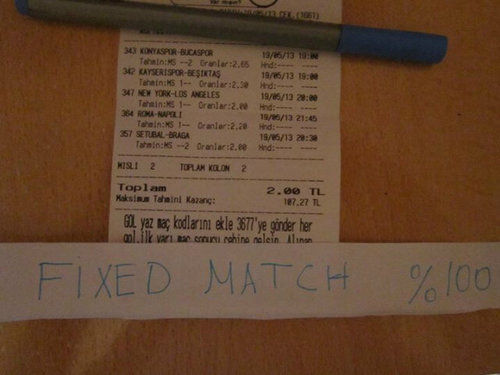 343 KONYASPOR-BUCASPOR 19/05/13 19:00
Tahmin:MS --2 Oranlar:2.65 Hnd:---- ----
342 KAYSERISPOR-BEŞİKTAŞ 19/05/13 19:00
Tahmin:MS 1-- Oranlar:2.30 Hnd:---- ----
347 NEW YORK-LOS ANGELES 19/05/13 20:00
Tahmin:MS 1-- Oranlar:2.00 Hnd:---- ----
364 ROMA-NAPOLI 19/05/13 21:45
Tahmin:MS 1-- Oranlar:2.20 Hnd:---- ----
357 SETUBAL-BRAGA 19/05/13 20:30
Tahmin:MS --2 Oranlar:2.00 Hnd:---- ----
MISLI 2 TOPLAM KOLON 2
Toplam 2.00 TL
Maksimum Tahmini Kazanç: 107.27 TL
GOL yaz maç kodlarını ekle 3677'ye gönder her
gol,ilk yarı maç sonucu cebine gelsin.
FIXED MATCH %100